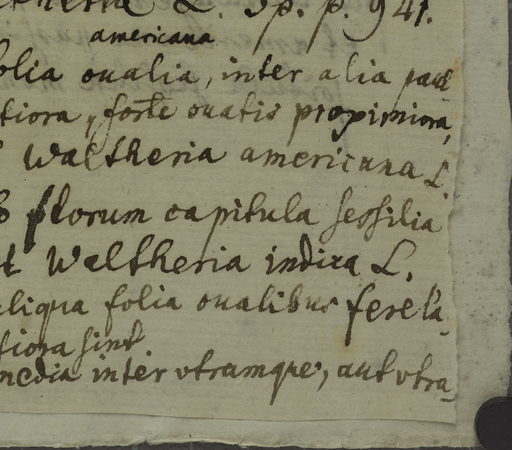 L. Sp. p. 941.
americana
folia ovalia, inter alia paul
tiora, forte ovatis propimiora,
Waltheria americana L.
florum capitula sessilia
Waltheria indica L.
aliqua folia ovalibus fere la-
tiora sint
media inter vtramque, aut vtra-